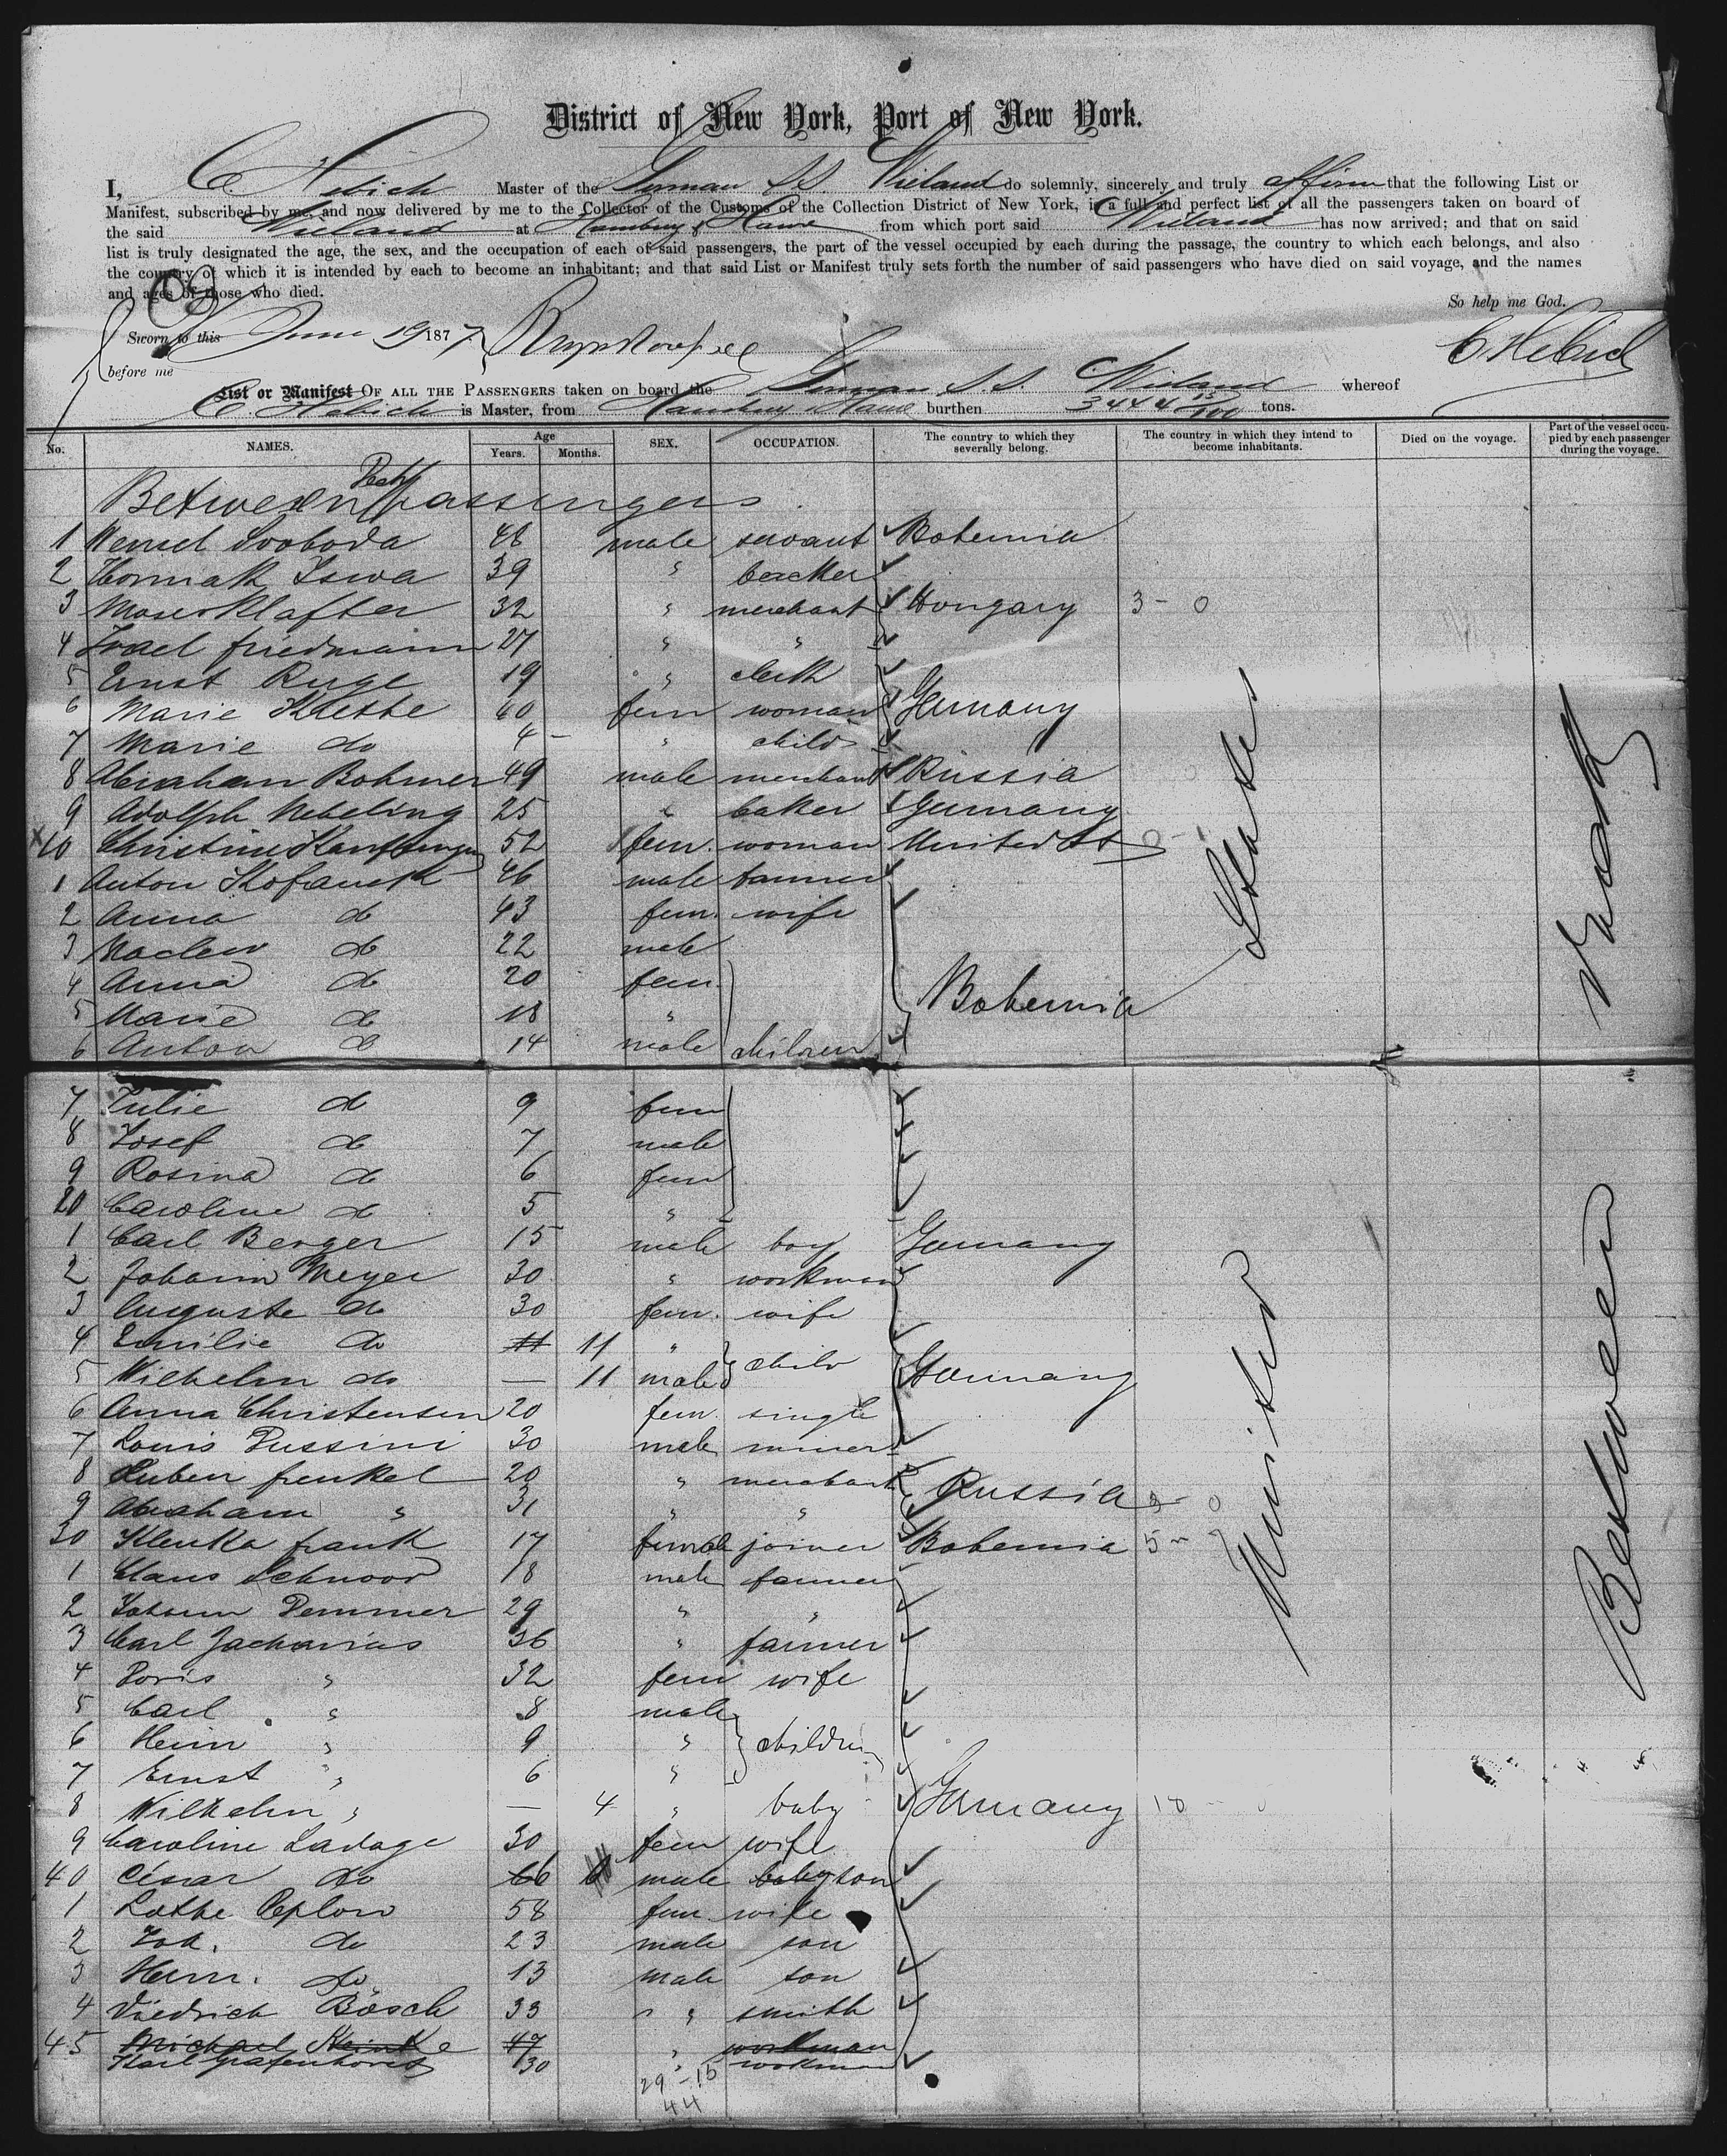 District of New York, Port of New York.
I, C. Hebich Master of the German S.S. Wieland do solemnly, sincerely and truly affirm that the following List or
Manifest, subscribed by me, and now delivered by me to the Collector of the Customs of the Collection District of New York, is a full and perfect list of all the passengers taken on board of
the said Wieland at Hamburg & Havre from which port said Wieland has now arrived; and that on said
list is truly designated the age, the sex, and the occupation of each of said passengers, the part of the vessel occupied by each during the passage, the country to which each belongs, and also
the country of which it is intended by each to become an inhabitant; and that said List or Manifest truly sets forth the number of said passengers who have died on said voyage, and the names
and ages of those who died.
So help me God.
Sworn to this June 19 1877
C. Hebich
before me
List or Manifest OF ALL THE PASSENGERS taken on board the German S.S. Wieland whereof
C Hebich is Master, from Hamburg Havre burthen 3444 tons.
No. NAMES. Age Years. Months. SEX. OCCUPATION. The country to which they severally belong. The country in which they intend to become inhabitants. Died on the voyage. Part of the vessel occupied by each passenger during the voyage.
Between Deck passengers
1 Wenzel Svoboda 48 male servant Bohemia
2 39 "
3 Moses Klafter 32 " merchant Hongary 3 - 0
4 Israel Friedmann 27 " "
5 Ernst Ruge 19 " clerk
6 Marie 60 fem woman Germany
7 Marie do 4 " child
8 Abraham Bohmer 49 male merchant Russia
9 Adolph Nebeling 25 " baker Germany
10 Christine 52 fem. woman United St
1 Anton 46 male
2 Anna do 43 fem. wife
3 do 22 male
4 Anna do 20 fem.
5 Marie do 18 "
6 Anton do 14 male children
Bohemia
7 Julie do 9 fem
8 Josef do 7 male
9 Rosina do 6 fem
20 Caroline do 5 "
1 Carl Berger 15 male boy Germany
2 Johann Meyer 30 " workman
3 Auguste do 30 fem. wife
4 Emilie do 11 11 "
5 Wilhelm do — 11 male child Germany
6 Anna Christensen 20 fem. single
7 Louis Pussini 30 male miner
8 Ruben Frenkel 20 " merchant Russia
9 Abraham " 31 " "
30 Klenka Frank 17 joiner Bohemia
1 Claus Schnoor 18 male farmer
2 Johann Demmer 29 " "
3 Carl Zacharias 36 " farmer
4 Doris " 32 fem wife
5 Carl " 8 male
6 Heinr " 9 " children
7 Ernst " 6 "
8 Wilhelm " — 4 " baby Germany
9 Caroline Ladage 30 fem wife
40 César do 6 male son
1 58 fem wife
2 Joh. do 23 male son
3 Heinr. do 13 male son
4 Diedrich Bösch 33 " smith
45 Michael 47 " workman
Karl 30 " workman
29 - 15
44
United States
Between Deck